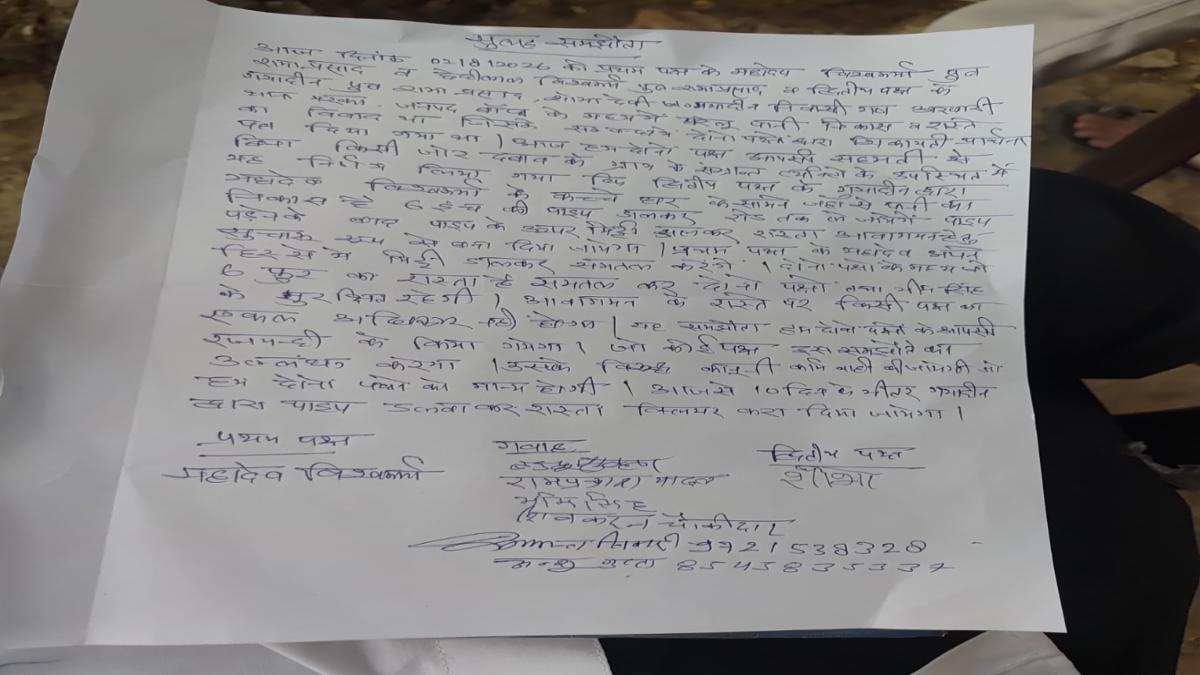 सुलह समझौता
आज दिनांक 02/8/2026 को प्रथम पक्ष के महादेव विश्वकर्मा पुत्र
रामा प्रसाद व विश्वकर्मा पुत्र रामाप्रसाद व द्वितीय पक्ष के
गयादीन पुत्र रामा प्रसाद, शोभा देवी गयादीन निवासी
जनपद बाँदा के मध्य घरेलू पानी निकास व रास्ते
का विवाद था जिसके सम्बन्ध में दोनों पक्षों द्वारा शिकायती प्रार्थना
पत्र दिया गया था। आज हम दोनों पक्ष आपसी सहमती से
बिना किसी जोर दबाव के ग्राम के संभ्रान्त व्यक्तियों के उपस्थित में
यह निर्णय लिया गया कि द्वितीय पक्ष के गयादीन द्वारा
महादेव विश्वकर्मा के कच्चे घर के सामने जहाँ से पानी का
निकास है 6 इंच की पाइप डालकर रोड तक ले जायेगे पाइप
पड़ने के बाद पाइप के ऊपर मिट्टी डालकर रास्ता आवागमन हेतु
सुचारू रूप से बना दिया जायेगा। प्रथम पक्ष के महादेव अपने
हिस्से में मिट्टी डालकर समतल करेगे। दोनो पक्षो के मध्य जो
6 फुट का रास्ता है समतल कर दोनो पक्षो तथा भीम सिंह
के सुरक्षित रहेगी। आवागमन के रास्ते पर किसी पक्ष का
एकल अधिकार नही होगा। यह समझौता हम दोनो पक्षो के आपसी
रजामन्दी के किया गया। जो कोई पक्ष इस समझौते का
उल्लंघन करेगा। उसके विरुद्ध कानूनी कार्यवाही की जायेगी जो
हम दोनो पक्षो को मान्य होगी। आज से 10 दिन के भीतर गयादीन
द्वारा पाइप डलवा कर रास्ता क्लियर करा दिया जायेगा।
प्रथम पक्ष
महादेव विश्वकर्मा
गवाह
यादव
भीम सिंह
शिवकरन चौकीदार
तिवारी 9721538328
गुप्ता 8545835337
द्वितीय पक्ष
शोभा